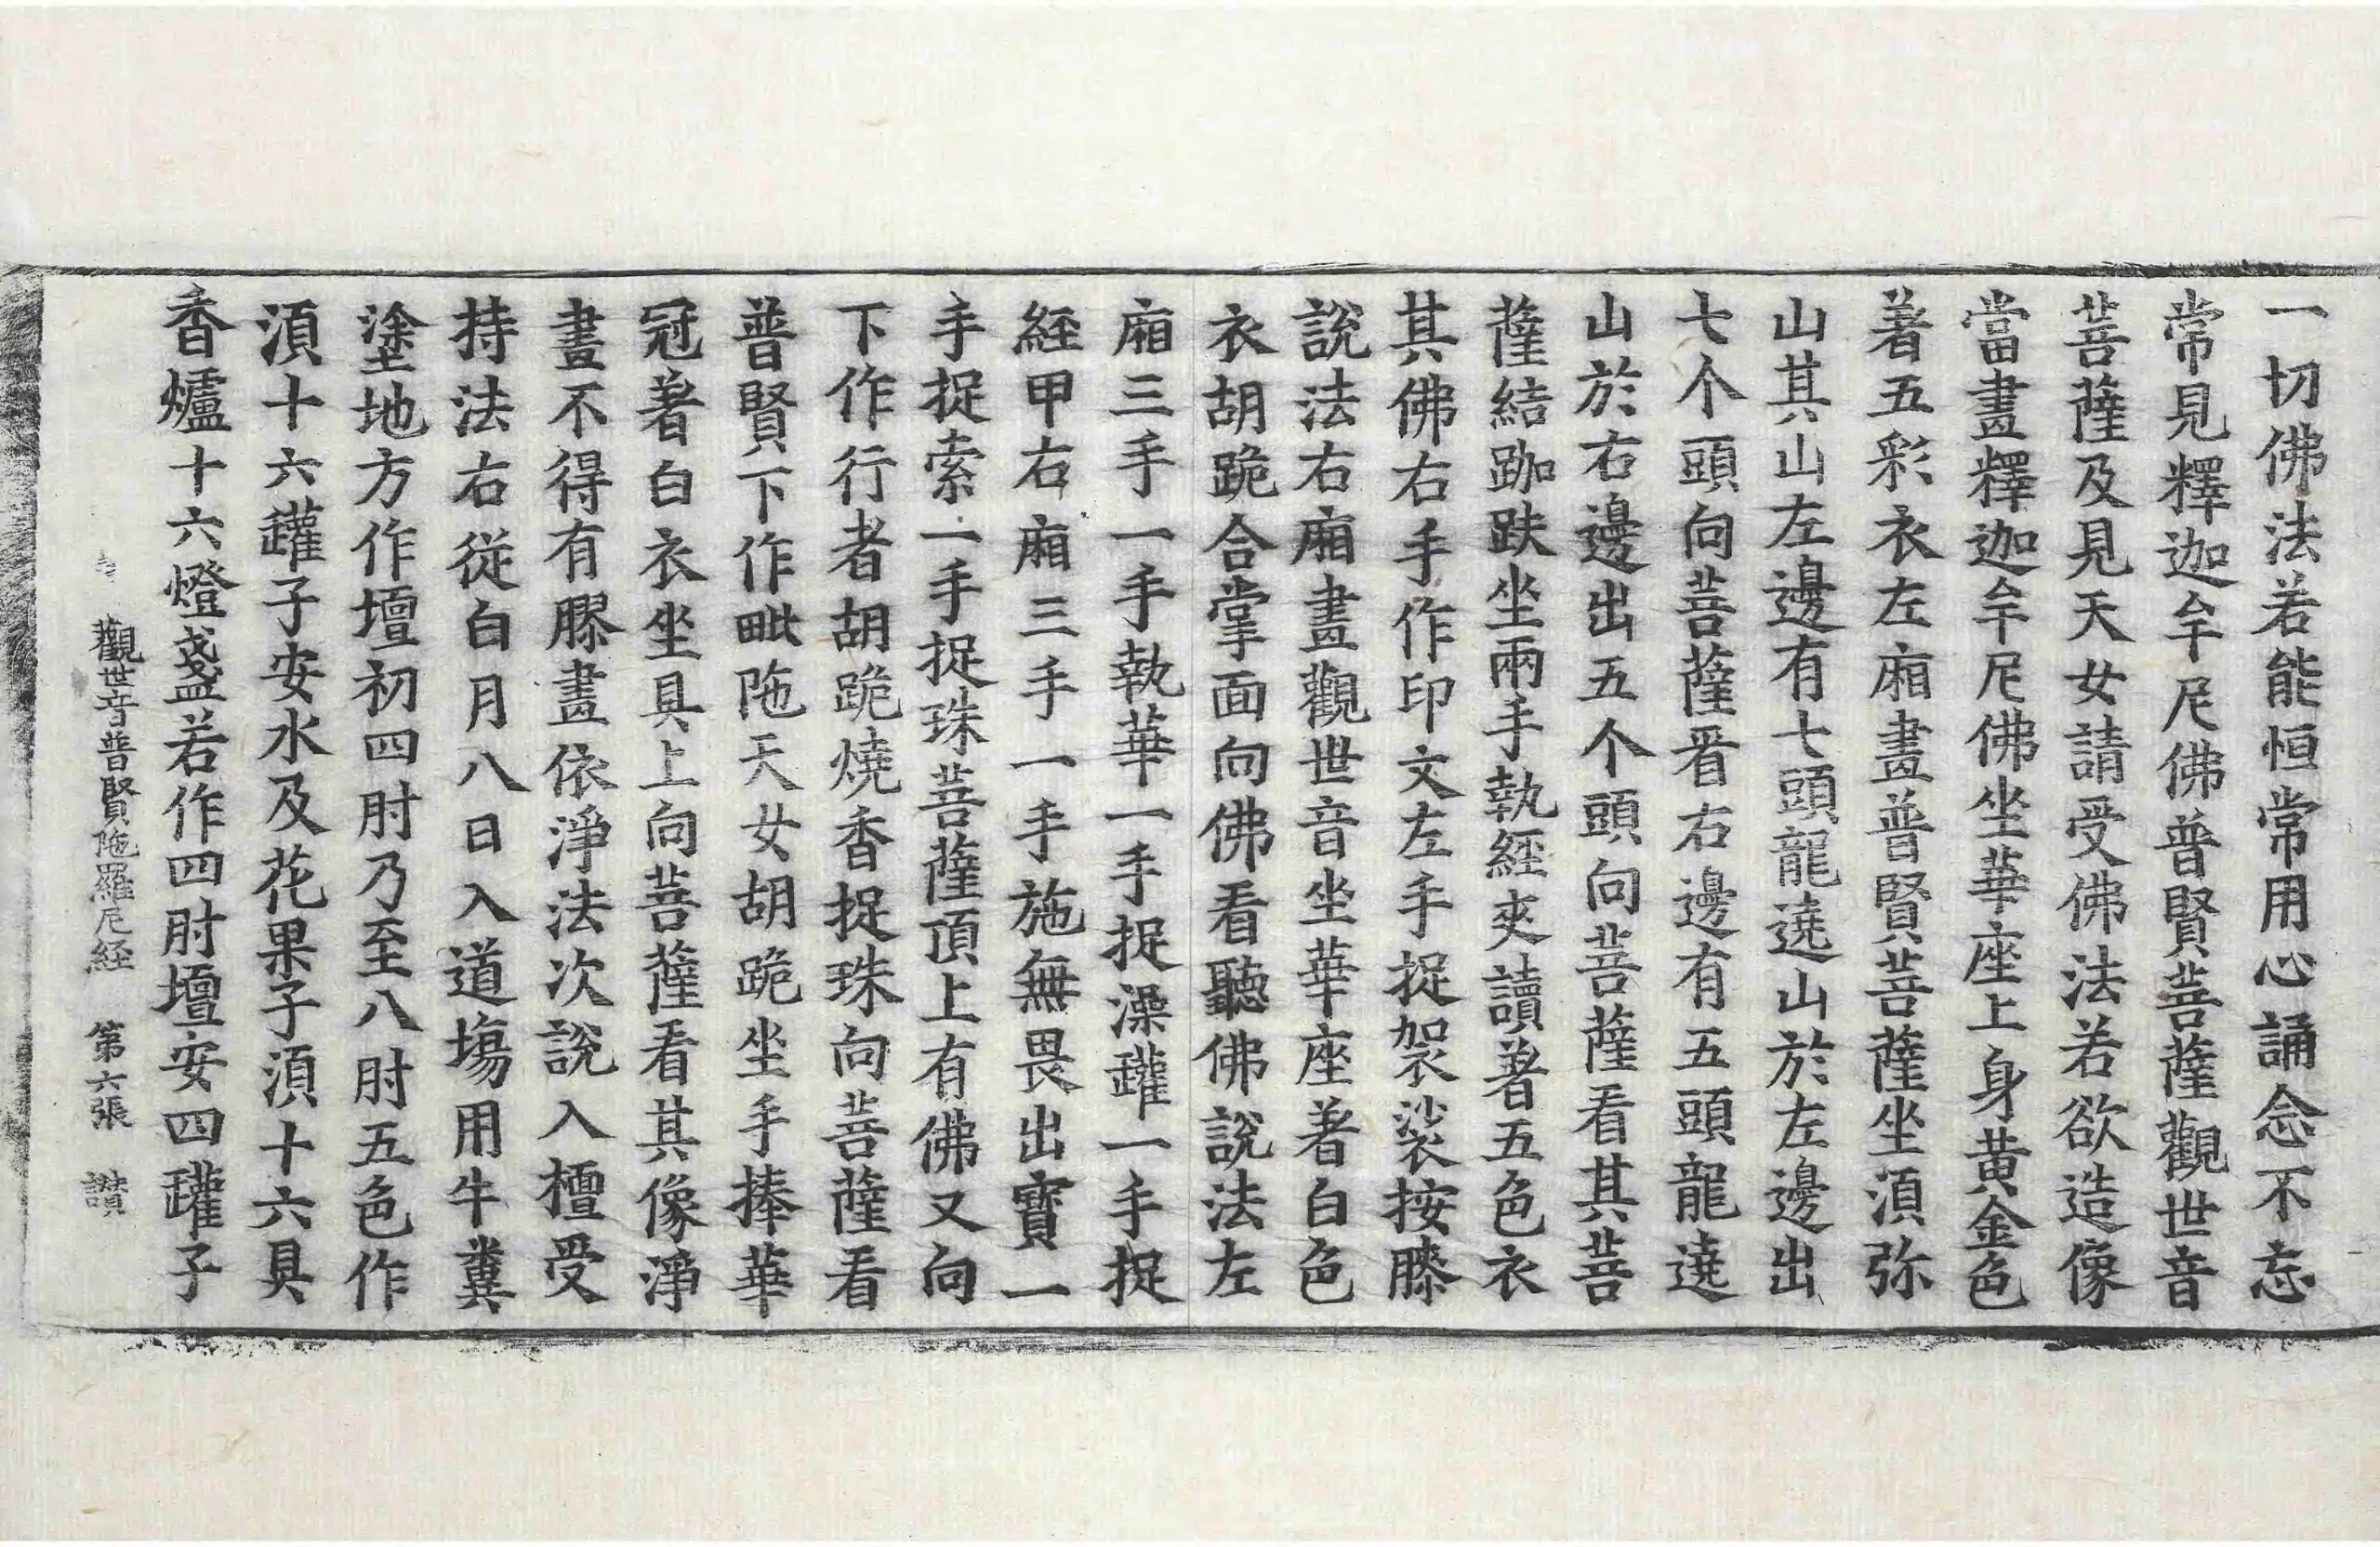 一切佛法若能恒常用心誦念不忘
常見釋迦牟尼佛普賢菩薩觀世音
菩薩及見天女請受佛法若欲造像
當畫釋迦牟尼佛坐華座上身黃金色
著五彩衣左廂畫普賢菩薩坐湏弥
山其山左邊有七頭龍遶山於左邊出
七个頭向菩薩看右邊有五頭龍遶
山於右邊出五个頭向菩薩看其菩
薩結跏趺坐兩手執經夾讀著五色衣
其佛右手作印文左手捉袈裟按膝
說法右廂畫觀世音坐華座著白色
衣胡跪合掌面向佛看聽佛說法左
廂三手一手執華一手捉澡罐一手捉
經甲右廂三手一手施無畏出寳一
手捉索一手捉珠菩薩頂上有佛又向
下作行者胡跪燒香捉珠向菩薩看
普賢下作毗陁天女胡跪坐手捧華
冠著白衣坐具上向菩薩看其像淨
畫不得有膠畫依淨法次說入檀受
持法右從白月八日入道場用牛糞
塗地方作壇初四肘乃至八肘五色作
湏十六罐子安水及花果子湏十六具
香爐十六燈盞若作四肘壇安四罐子
觀世音普賢陁羅尼経　第六張　讃